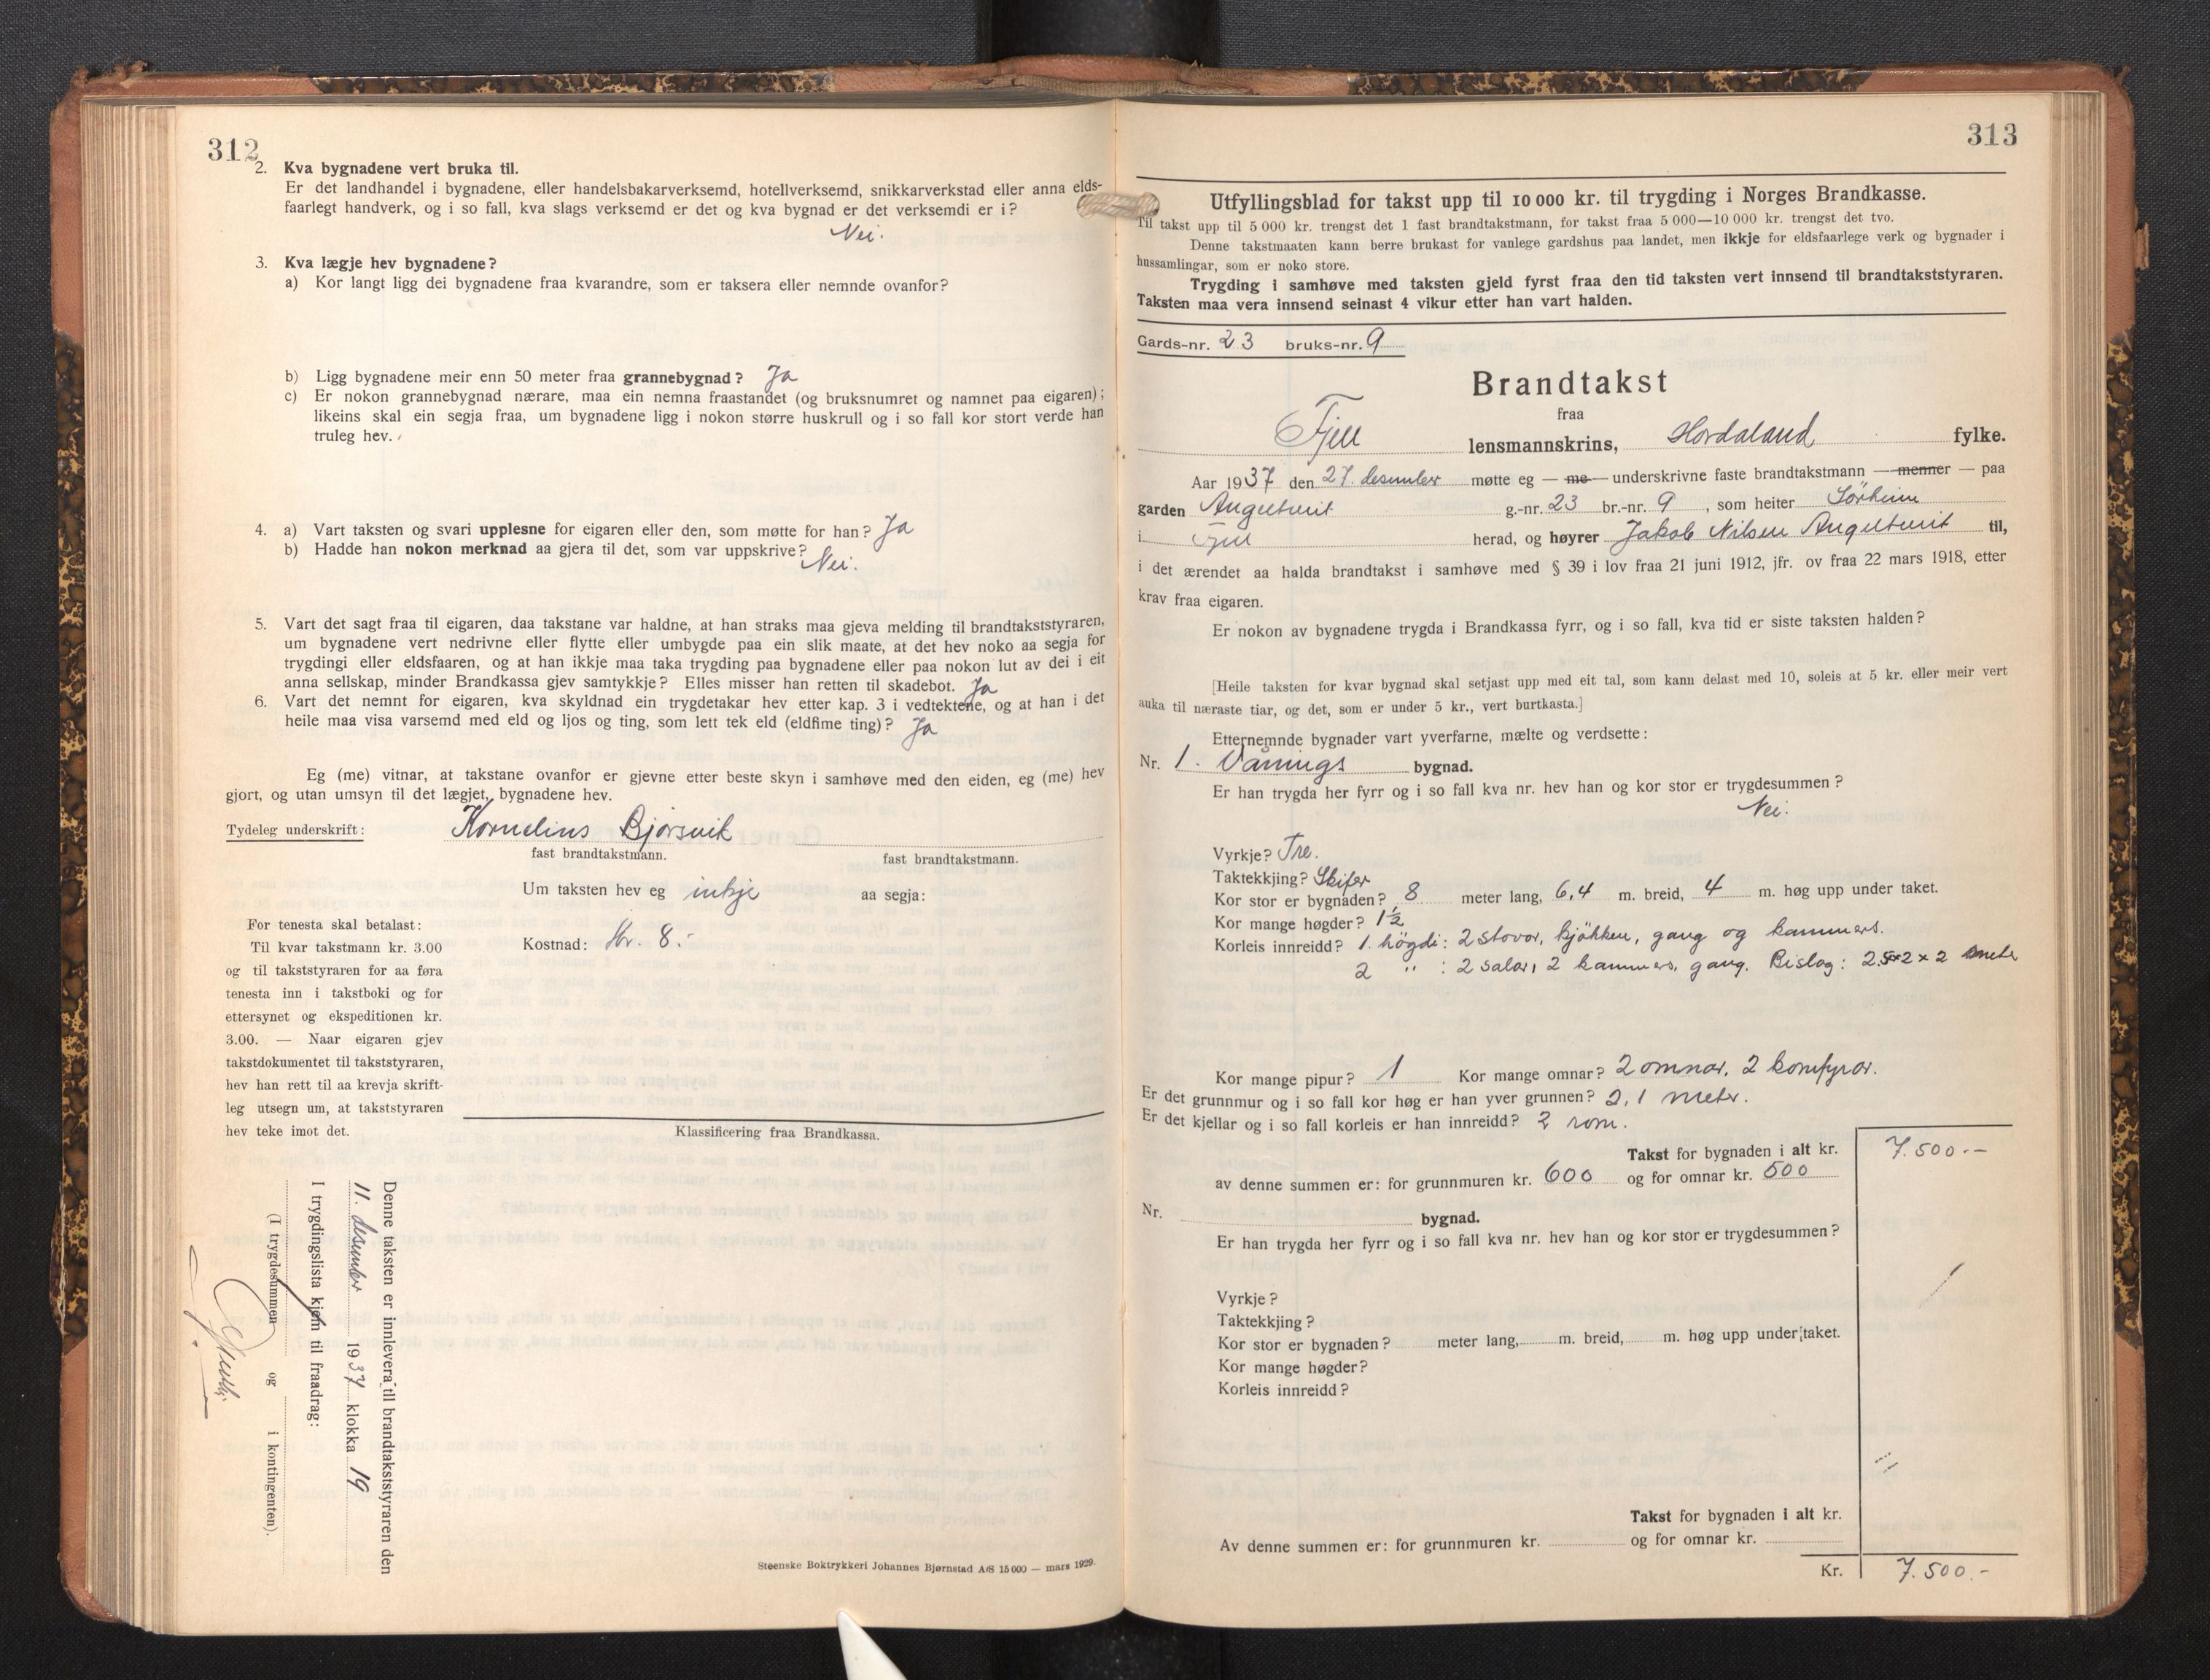 312
2. Kva bygnadene vert bruka til.
Er det landhandel i bygnadene, eller handelsbakarverksemd, hotellverksemd, snikkarverkstad eller anna elds-
faarlegt handverk, og i so fall, kva slags verksemd er det og kva bygnad er det verksemdi er i?
Nei.
3. Kva lægje hev bygnadene?
a) Kor langt ligg dei bygnadene fraa kvarandre, som er taksera eller nemnde ovanfor?
b) Ligg bygnadene meir enn 50 meter fraa grannebygnad? Ja
c) Er nokon grannebygnad nærare, maa ein nemna fraastandet (og bruksnumret og namnet paa eigaren);
likeins skal ein segja fraa, um bygnadene ligg i nokon større huskrull og i so fall kor stort verde han
truleg hev.
4. a) Vart taksten og svari upplesne for eigaren eller den, som møtte for han? Ja
b) Hadde han nokon merknad aa gjera til det, som var uppskrive? Nei.
5. Vart det sagt fraa til eigaren, daa takstane var haldne, at han straks maa gjeva melding til brandtakststyraren,
um bygnadene vert nedrivne eller flytte eller umbygde paa ein slik maate, at det hev noko aa segja for
trygdingi eller eldsfaaren, og at han ikkje maa taka trygding paa bygnadene eller paa nokon lut av dei i eit
anna sellskap, minder Brandkassa gjev samtykkje? Elles misser han retten til skadebot. Ja
6. Vart det nemnt for eigaren, kva skyldnad ein trygdetakar hev etter kap. 3 i vedtektene, og at han i det
heile maa visa varsemd med eld og ljos og ting, som lett tek eld (eldfime ting)? Ja
Eg (me) vitnar, at takstane ovanfor er gjevne etter beste skyn i samhøve med den eiden, eg (me) hev
gjort, og utan umsyn til det lægjet, bygnadene hev.
Tydeleg underskrift: Kornelius Bjorsvik
fast brandtakstmann. fast brandtakstmann.
Um taksten hev eg inkje aa segja:
Kostnad: Kr. 8.-
For tenesta skal betalast:
Til kvar takstmann kr. 3.00
og til takststyraren for aa føra
tenesta inn i takstboki og for
ettersynet og ekspeditionen kr.
3.00. — Naar eigaren gjev
takstdokumentet til takststyraren,
hev han rett til aa krevja skrift-
leg utsegn um, at takststyraren
hev teke imot det.
Klassificering fraa Brandkassa.
Denne taksten er innlevera til brandtakststyraren den
11. desember 1937 klokka 19
I trygdingslista kjem til fraadrag:
(I trygdesummen og i kontingenten).
Steenske Boktrykkeri Johannes Bjørnstad A/S 15 000 — mars 1929.
313
Utfyllingsblad for takst upp til 10 000 kr. til trygding i Norges Brandkasse.
Til takst upp til 5 000 kr. trengst det 1 fast brandtakstmann, for takst fraa 5 000—10 000 kr. trengst det tvo.
Denne takstmaaten kann berre brukast for vanlege gardshus paa landet, men ikkje for eldsfaarlege verk og bygnader i
hussamlingar, som er noko store.
Trygding i samhøve med taksten gjeld fyrst fraa den tid taksten vert innsend til brandtakststyraren.
Taksten maa vera innsend seinast 4 vikur etter han vart halden.
Gards-nr. 23 bruks-nr. 9
Brandtakst
fraa
Fjell lensmannskrins, Hordaland fylke.
Aar 1937 den 27. desember møtte eg — me — underskrivne faste brandtakstmann — menner — paa
garden Angeltveit g.-nr. 23 br.-nr. 9, som heiter Sörheim
i Fjell herad, og høyrer Jakob Nilsen Angeltveit til,
i det ærendet aa halda brandtakst i samhøve med § 39 i lov fraa 21 juni 1912, jfr. ov fraa 22 mars 1918, etter
krav fraa eigaren.
Er nokon av bygnadene trygda i Brandkassa fyrr, og i so fall, kva tid er siste taksten halden?
[Heile taksten for kvar bygnad skal setjast upp med eit tal, som kann delast med 10, soleis at 5 kr. eller meir vert
auka til næraste tiar, og det, som er under 5 kr., vert burtkasta.]
Etternemnde bygnader vart yverfarne, mælte og verdsette:
Nr. 1. Vånings bygnad.
Er han trygda her fyrr og i so fall kva nr. hev han og kor stor er trygdesummen?
Nei.
Vyrkje? Tre.
Taktekkjing? Skifer
Kor stor er bygnaden? 8 meter lang, 6,4 m. breid, 4 m. høg upp under taket.
Kor mange høgder? 1½
Korleis innreidd? 1. högdi: 2 stovor, kjökken, gang og kammers.
2 " : 2 salar, 2 kammers, gang. Bislag: 2.5×2×2 meter
Kor mange pipur? 1 Kor mange omnar? 2 omnar, 2 komfyrar.
Er det grunnmur og i so fall kor høg er han yver grunnen? 2,1 meter.
Er det kjellar og i so fall korleis er han innreidd? 2 rom.
Takst for bygnaden i alt kr. 7.500.-
av denne summen er: for grunnmuren kr. 600 og for omnar kr. 500
Nr. bygnad.
Er han trygda her fyrr og i so fall kva nr. hev han og kor stor er trygdesummen?
Vyrkje?
Taktekkjing?
Kor stor er bygnaden? meter lang, m. breid, m. høg upp under taket.
Kor mange høgder?
Korleis innreidd?
Takst for bygnaden i alt kr.
Av denne summen er: for grunnmuren kr. og for omnar kr.
Kr. 7.500.-